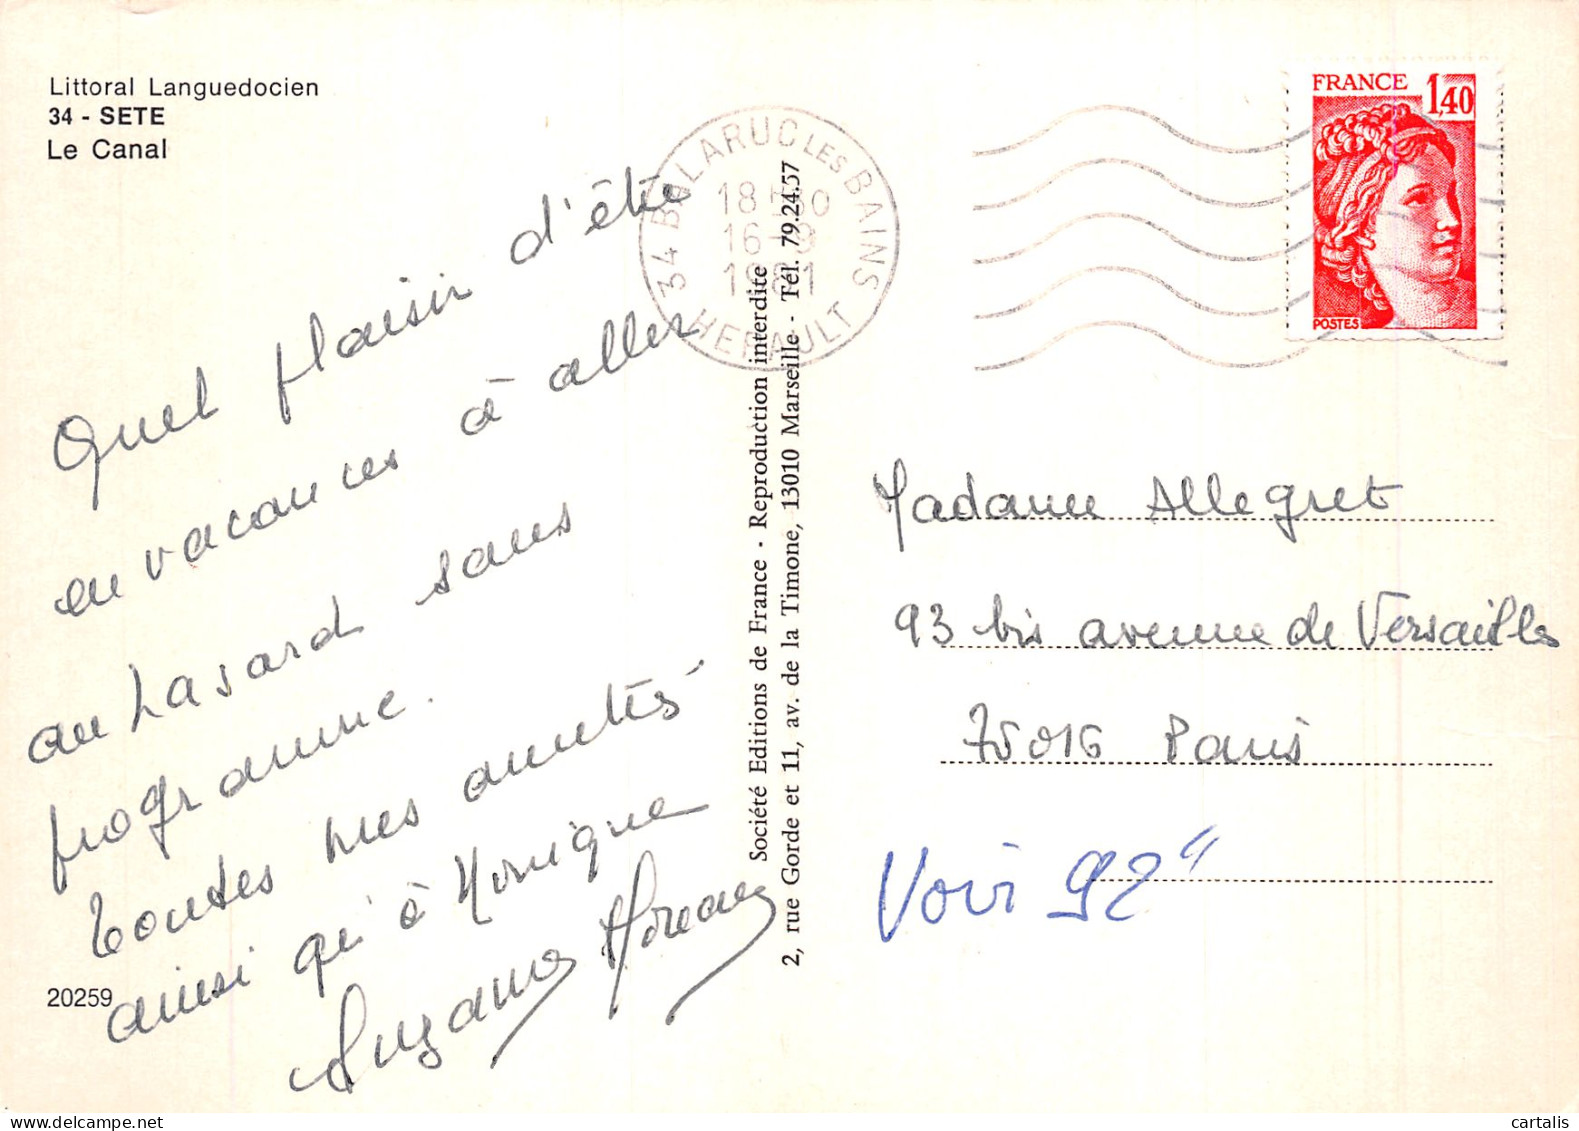 Littoral Languedocien
34 - SETE
Le Canal
Quel plaisir d'été
en vacances à aller
au hasard sans
programme.
Toutes mes amitiés
ainsi qu'à Monique
Suzanne Moreau
20259
Société Editions de France - Reproduction interdite
2, rue Gorde et 11, av. de la Timone, 13010 Marseille - Tél. 79.24.57
34 BALARUC LES BAINS
18H30
16-9
1981
HERAULT
FRANCE
1,40
POSTES
Madame Allegret
93 bis avenue de Versailles
75016 Paris
Voir
cartalis